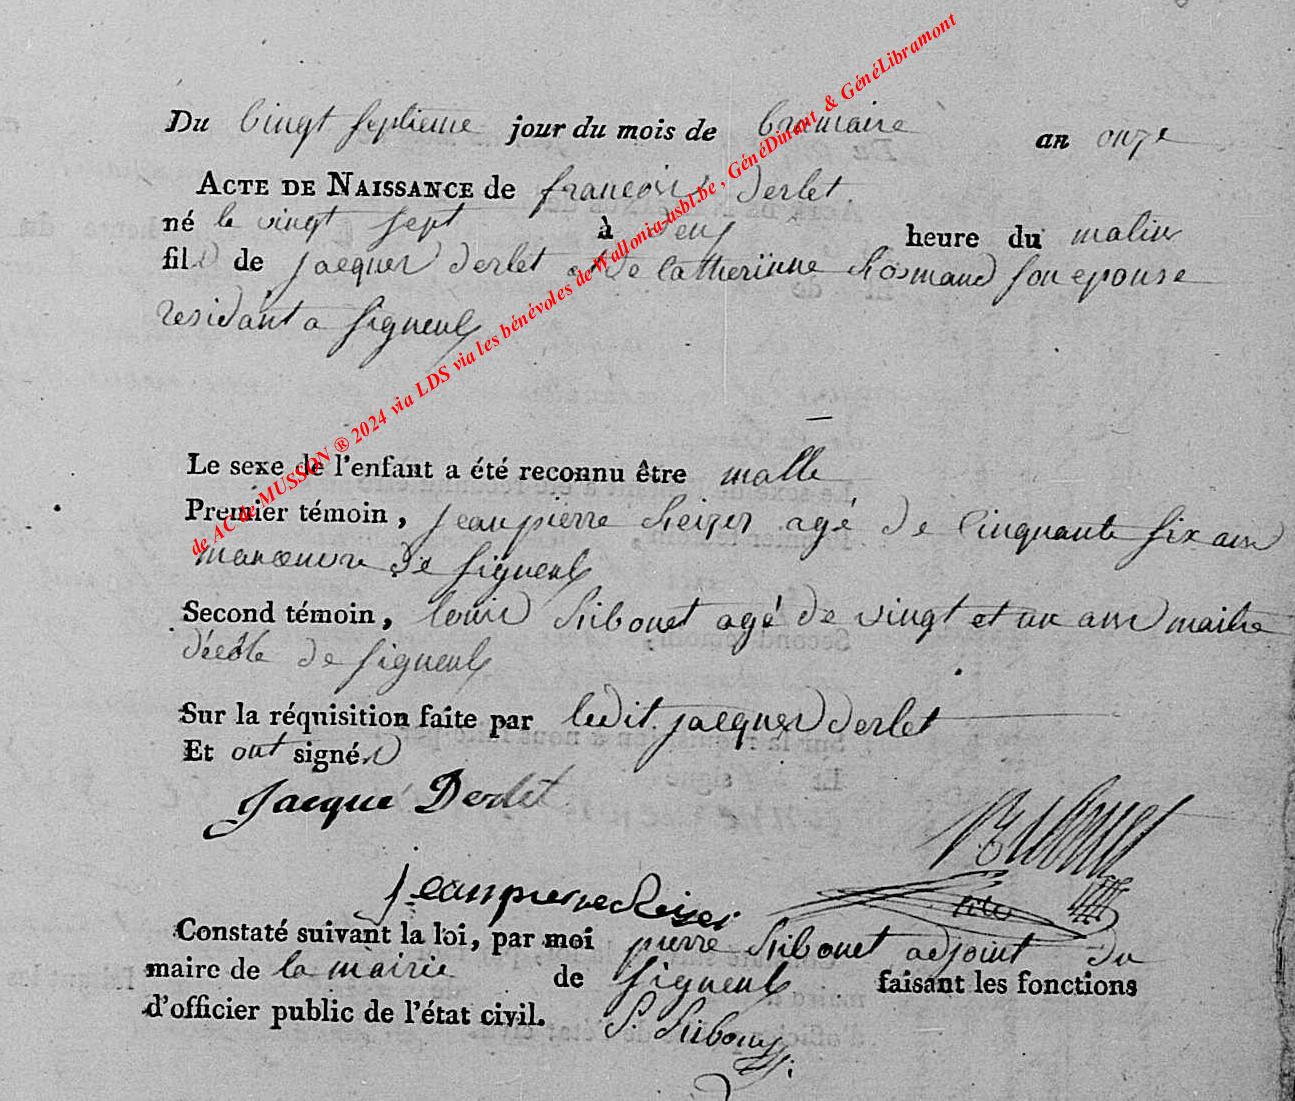 Du vingt septieme jour du mois de brumaire an onze
ACTE DE NAISSANCE de francois derlet
né le vingt sept à deux heure du matin
fils de jacques derlet et de catherinne son epouse
residant a signeulx
Le sexe de l'enfant a été reconnu être malle
Premier témoin, jean pierre agé de cinquante six ans
manoeuvre de signeulx
Second témoin, louis agé de vingt et un ans maitre
décôle de signeulx
Sur la réquisition faite par ledit jacques derlet
Et ont signés
Jacque Derlet
jean pierre
Constaté suivant la loi, par moi pierre adjoint du
maire de la mairie de signeulx faisant les fonctions
d'officier public de l'état civil.
de AC de MUSSON ® 2024 via LDS via les bénévoles de Wallonia-asbl.be, GénéDinant & GénéLibramont